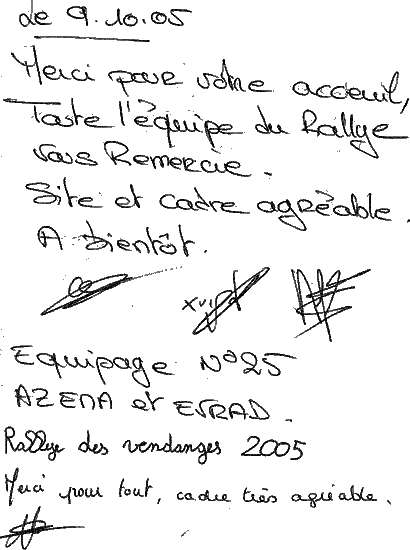 Le 9.10.05
Merci pour votre acceuil,
Toute l'équipe du Rallye
vous Remercie.
Site et cadre agréable.
A bientôt.
Equipage N°25
AZEMA et EVRAD.
Rallye des vendanges 2005
Merci pour tout, cadre très agréable.